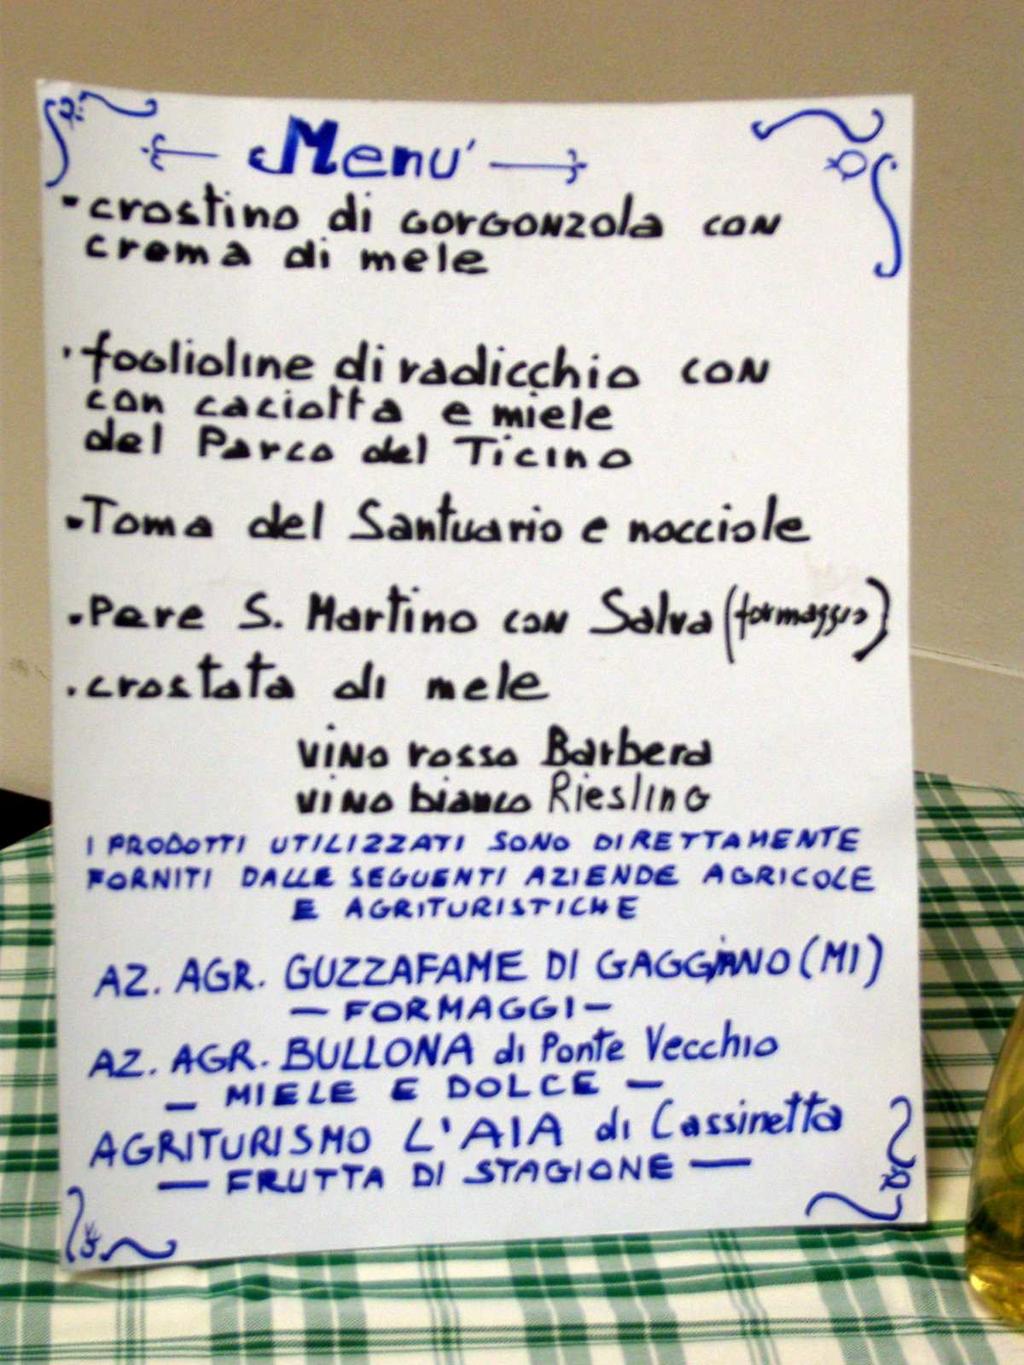 Menu'
- crostino di GORGONZOLA CON
crema di mele
· foglioline di radicchio CON
con caciotta e miele
del Parco del Ticino
· Toma del Santuario e nocciole
· Pere S. Martino con Salva (formaggio)
· crostata di mele
VINO rosso Barbera
VINO bianco Riesling
I PRODOTTI UTILIZZATI SONO DIRETTAMENTE
FORNITI DALLE SEGUENTI AZIENDE AGRICOLE
E AGRITURISTICHE
AZ. AGR. GUZZAFAME DI GAGGIANO (MI)
— FORMAGGI —
AZ. AGR. BULLONA di Ponte Vecchio
— MIELE E DOLCE —
AGRITURISMO L'AIA di Cassinetta
— FRUTTA DI STAGIONE —